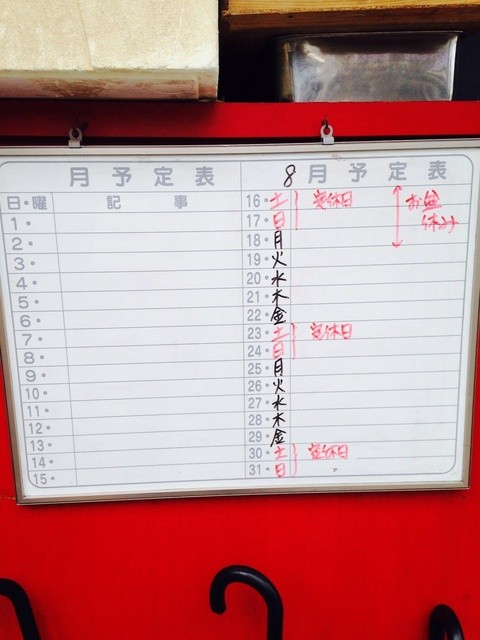 月予定表
日・曜 記事
1・
2・
3・
4・
5・
6・
7・
8・
9・
10・
11・
12・
13・
14・
15・
8月予定表
16・土 定休日 お盆
17・日 休み
18・月
19・火
20・水
21・木
22・金
23・土 定休日
24・日
25・月
26・火
27・水
28・木
29・金
30・土 定休日
31・日